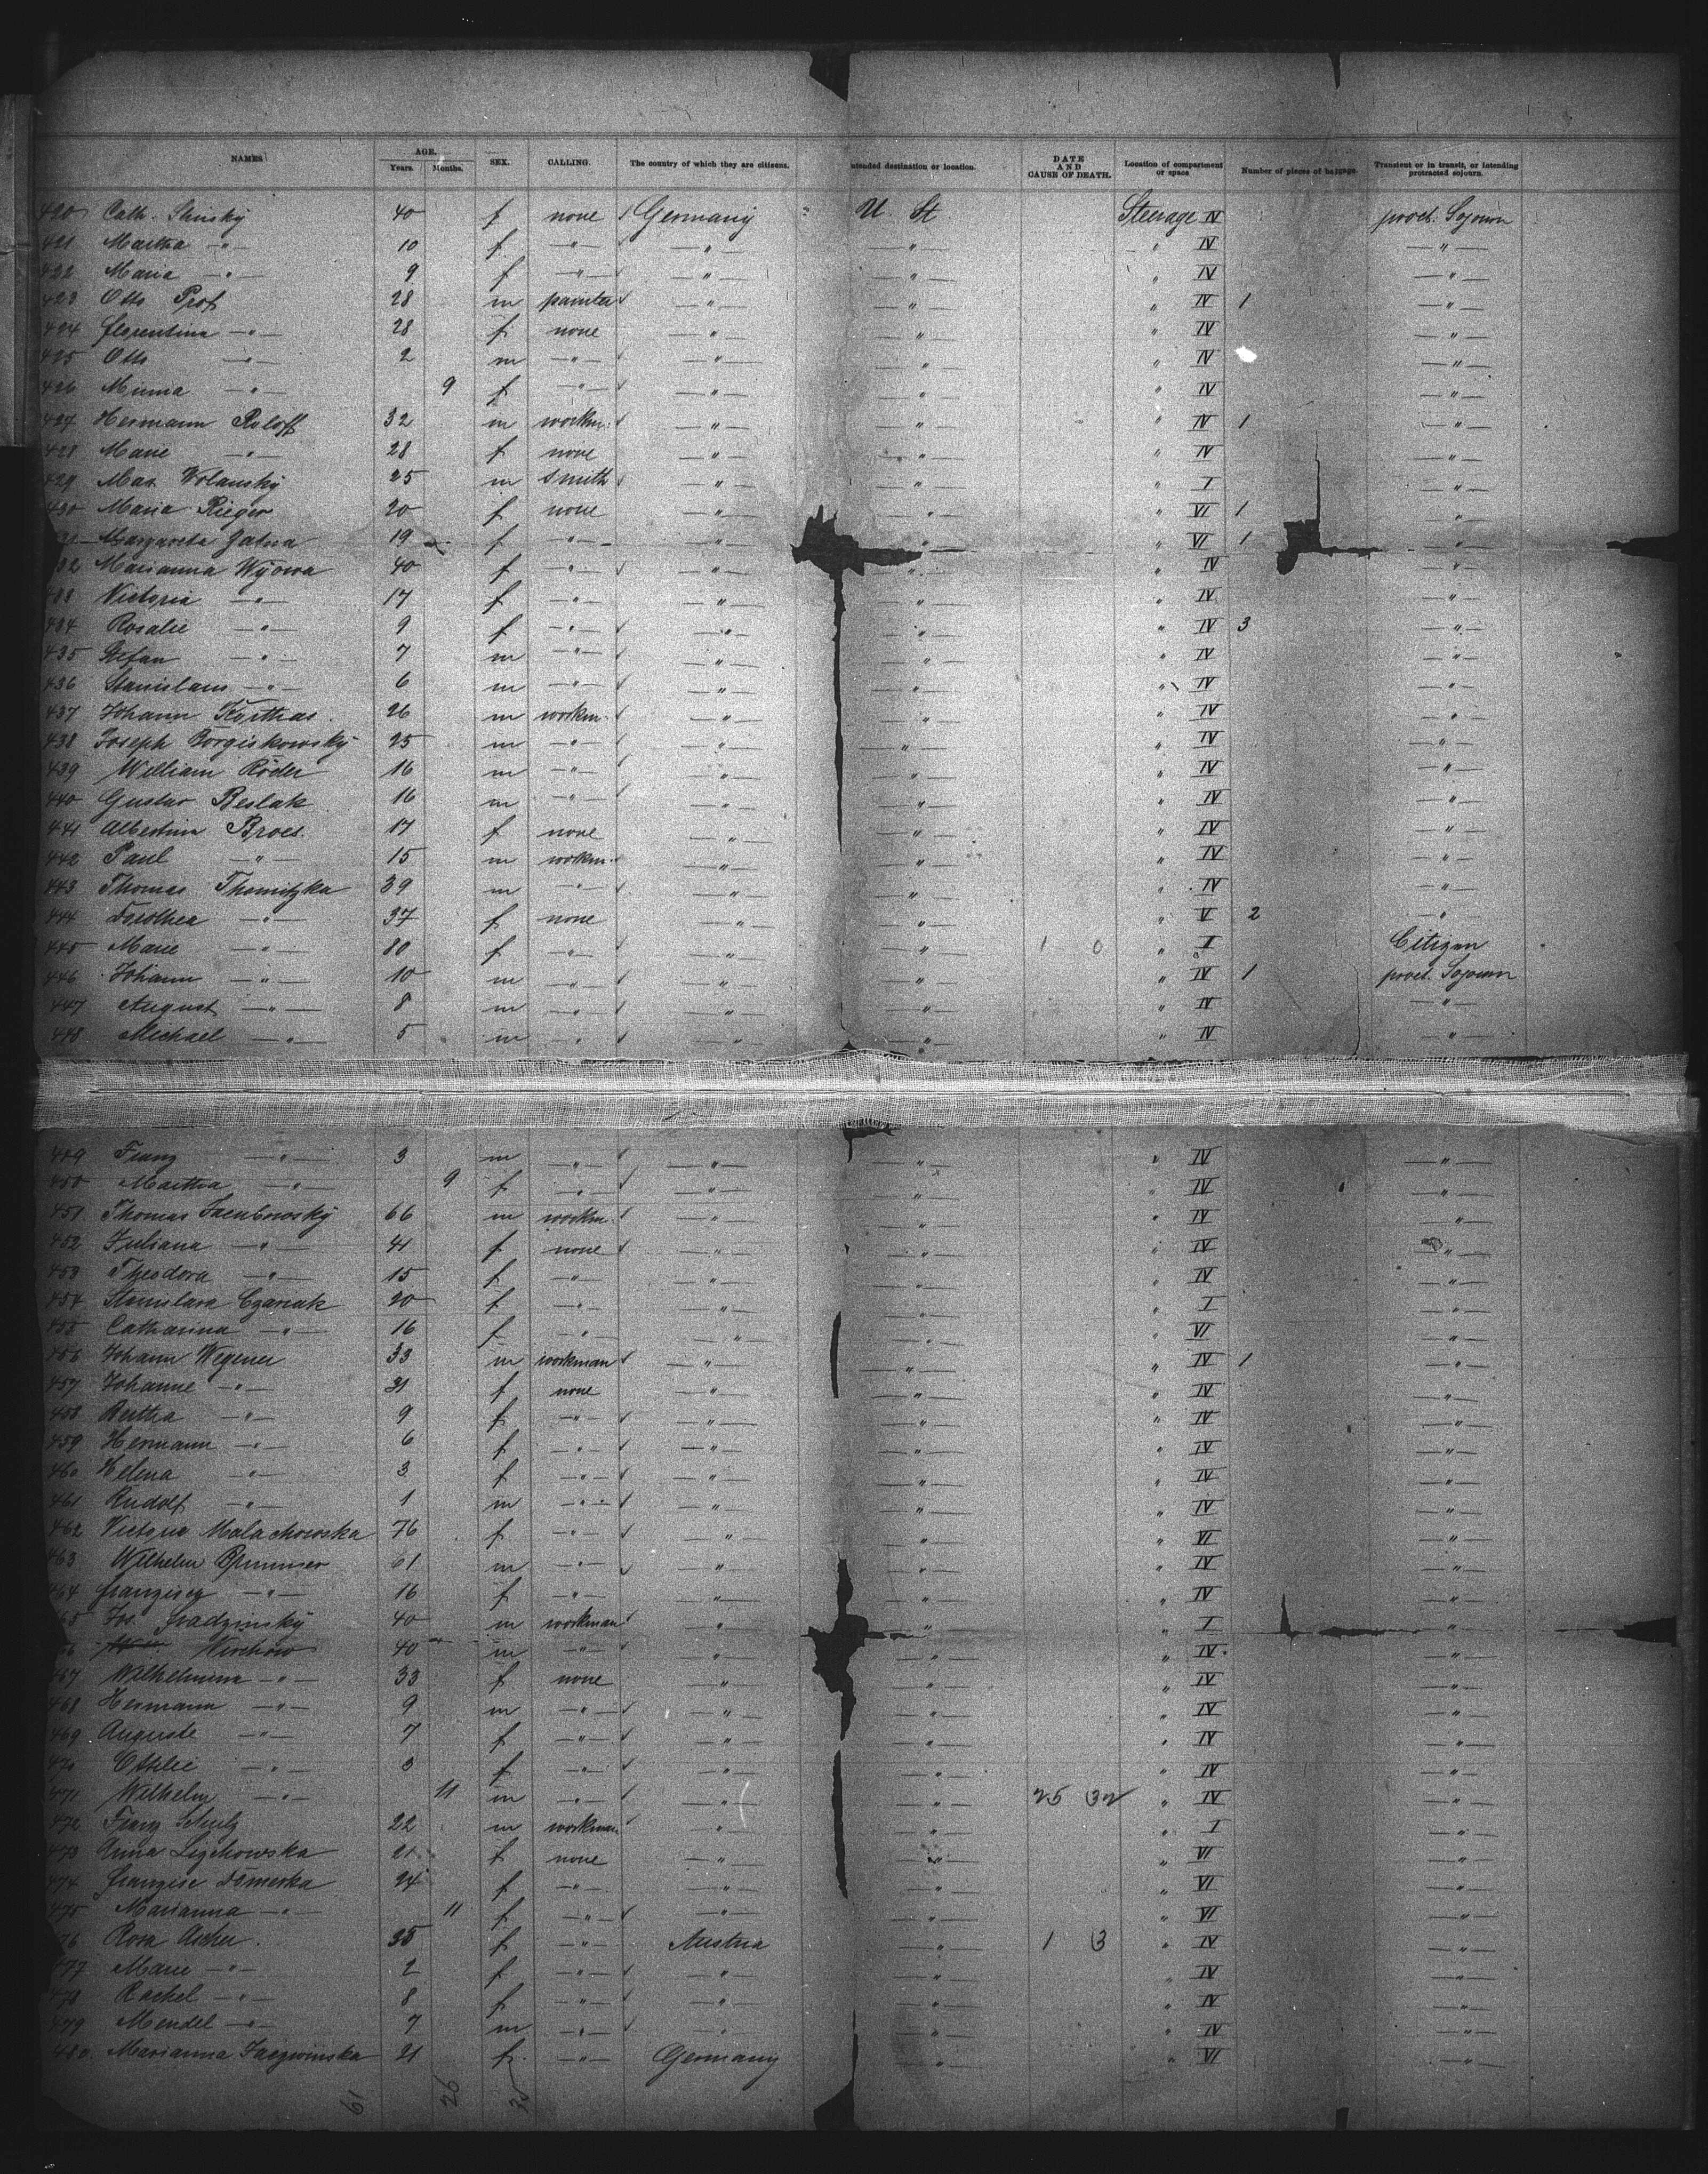 NAMES AGE. SEX. CALLING. The country of which they are citizens. Intended destination or location. DATE AND CAUSE OF DEATH. Location of compartment or space Number of pieces of baggage. Transient or in transit, or intending protracted sojourn.
Years. Months.
420 Cath. 40 f none Germany U St Steerage IV proct. Sojourn
421 Martha —"— 10 f —"— —"— —"— " IV —"—
422 Maria —"— 9 f —"— —"— —"— " IV —"—
423 Otto Prof 28 m painter —"— —"— " IV 1 —"—
424 Florentine —"— 28 f none —"— —"— " IV —"—
425 Otto —"— 2 m —"— —"— —"— " IV —"—
426 Minna —"— 9 f —"— —"— —"— " IV —"—
427 Hermann Roloff 32 m workm. —"— —"— " IV 1 —"—
428 Marie —"— 28 f none —"— —"— " IV —"—
429 Max Wolansky 25 m smith —"— —"— " I —"—
430 Maria Rieger 20 f none —"— —"— " VI 1 —"—
31 Margareta 19 f —"— —"— —"— " VI 1 —"—
32 Marianna Wyowa 40 f —"— —"— —"— " IV —"—
433 Victoria —"— 17 f —"— —"— —"— " IV —"—
434 Rosalie —"— 9 f —"— —"— —"— " IV 3 —"—
435 Stefan —"— 7 m —"— —"— —"— " IV —"—
436 Stanislaus —"— 6 m —"— —"— —"— " IV —"—
437 Johann 26 m workm. —"— —"— " IV —"—
438 Joseph Borgiskowsky 25 m —"— —"— —"— " IV —"—
439 William Röder 16 m —"— —"— —"— " IV —"—
440 Gustav Reslak 16 m —"— —"— —"— " IV —"—
441 Albertine Broes. 17 f none —"— —"— " IV —"—
442 Paul —"— 15 m workm. —"— —"— " IV —"—
443 Thomas Thomitzka 39 m —"— —"— —"— " IV —"—
444 Dorothea —"— 37 f none —"— —"— " V 2 —"—
445 Marie —"— 80 f —"— —"— —"— 1 0 " I Citizen
446 Johann —"— 10 m —"— —"— —"— " IV 1 proct. Sojourn
447 August —"— 8 m —"— —"— —"— " IV —"—
448 Michael —"— 5 m —"— —"— —"— " IV —"—
449 Franz —"— 3 m —"— —"— —"— " IV —"—
450 Martha —"— 9 f —"— —"— —"— " IV —"—
451 Thomas Jacubowsky 66 m workm. —"— —"— " IV —"—
452 Juliana —"— 41 f none —"— —"— " IV —"—
453 Theodora —"— 15 f —"— —"— —"— " IV —"—
454 Stanislava Czarnak 20 f —"— —"— —"— " I —"—
455 Catharina —"— 16 f —"— —"— —"— " VI —"—
456 Johann Wegener 33 m workman —"— —"— " IV 1 —"—
457 Johanne —"— 31 f none —"— —"— " IV —"—
458 Bertha —"— 9 f —"— —"— —"— " IV —"—
459 Hermann —"— 6 f —"— —"— —"— " IV —"—
460 Helena —"— 3 f —"— —"— —"— " IV —"—
461 Rudolf —"— 1 m —"— —"— —"— " IV —"—
462 Victoria Malachowska 76 f —"— —"— —"— " VI —"—
463 Wilhelm 61 m —"— —"— —"— " IV —"—
464 —"— 16 f —"— —"— —"— " IV —"—
65 Jos. 40 m workman —"— —"— " I —"—
66 Virchow 40 m —"— —"— —"— " IV —"—
467 Wilhelmina —"— 33 f none —"— —"— " IV —"—
468 Hermann —"— 9 m —"— —"— —"— " IV —"—
469 Auguste —"— 7 f —"— —"— —"— " IV —"—
470 Ottilie —"— 3 f —"— —"— —"— " IV —"—
471 Wilhelm —"— 11 m —"— —"— —"— 25 32 " IV —"—
472 Franz Schulz 22 m workman —"— —"— " I —"—
473 Anna Ligchowska 21 f none —"— —"— " VI —"—
474 24 f —"— —"— —"— " VI —"—
475 Marianna —"— 11 f —"— —"— —"— " VI —"—
76 Rosa Ascher. 35 f —"— Austria —"— 1 3 " IV —"—
477 Marie —"— 2 f —"— —"— —"— " IV —"—
478 Rachel —"— 8 f —"— —"— —"— " IV —"—
479 Mendel —"— 7 m —"— —"— —"— " IV —"—
480. Marianna 21 f. —"— Germany —"— " VI —"—
61 26 35